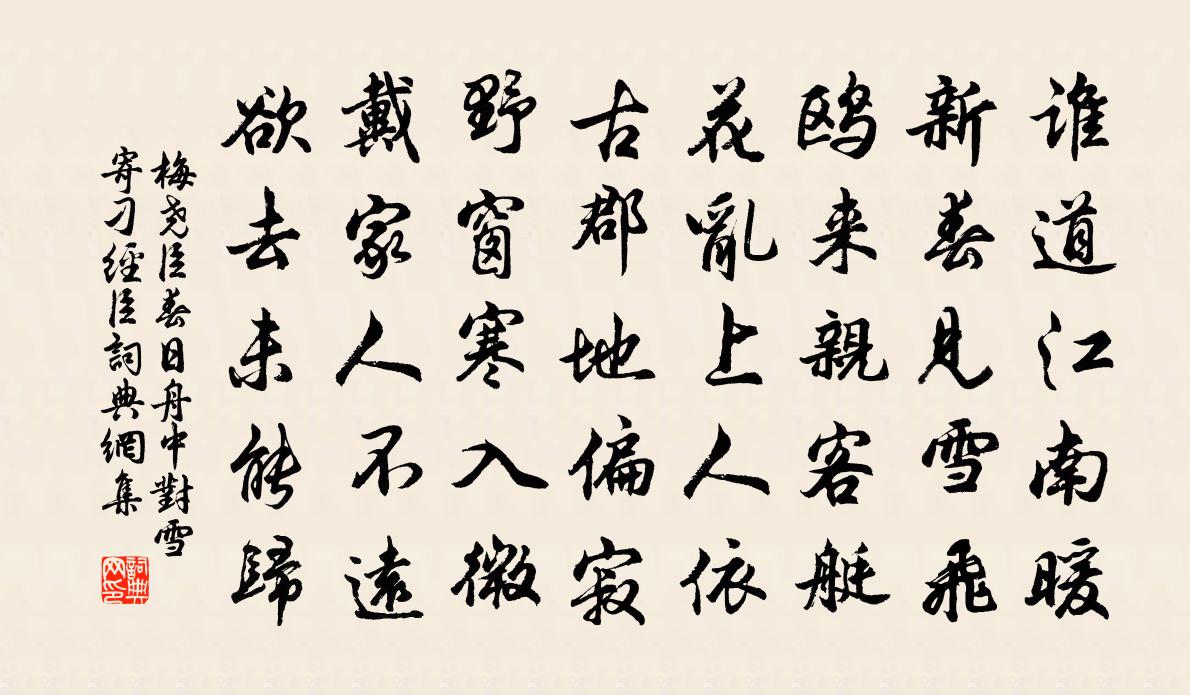 谁道江南暖
新春見雪飛
鸥来親客艇
花亂上人依
古郡地偏寂
野窗寒入微
戴家人不遠
欲去未能歸
梅尧臣春日舟中對雪
寄刁經臣詞典網集
詞典网印